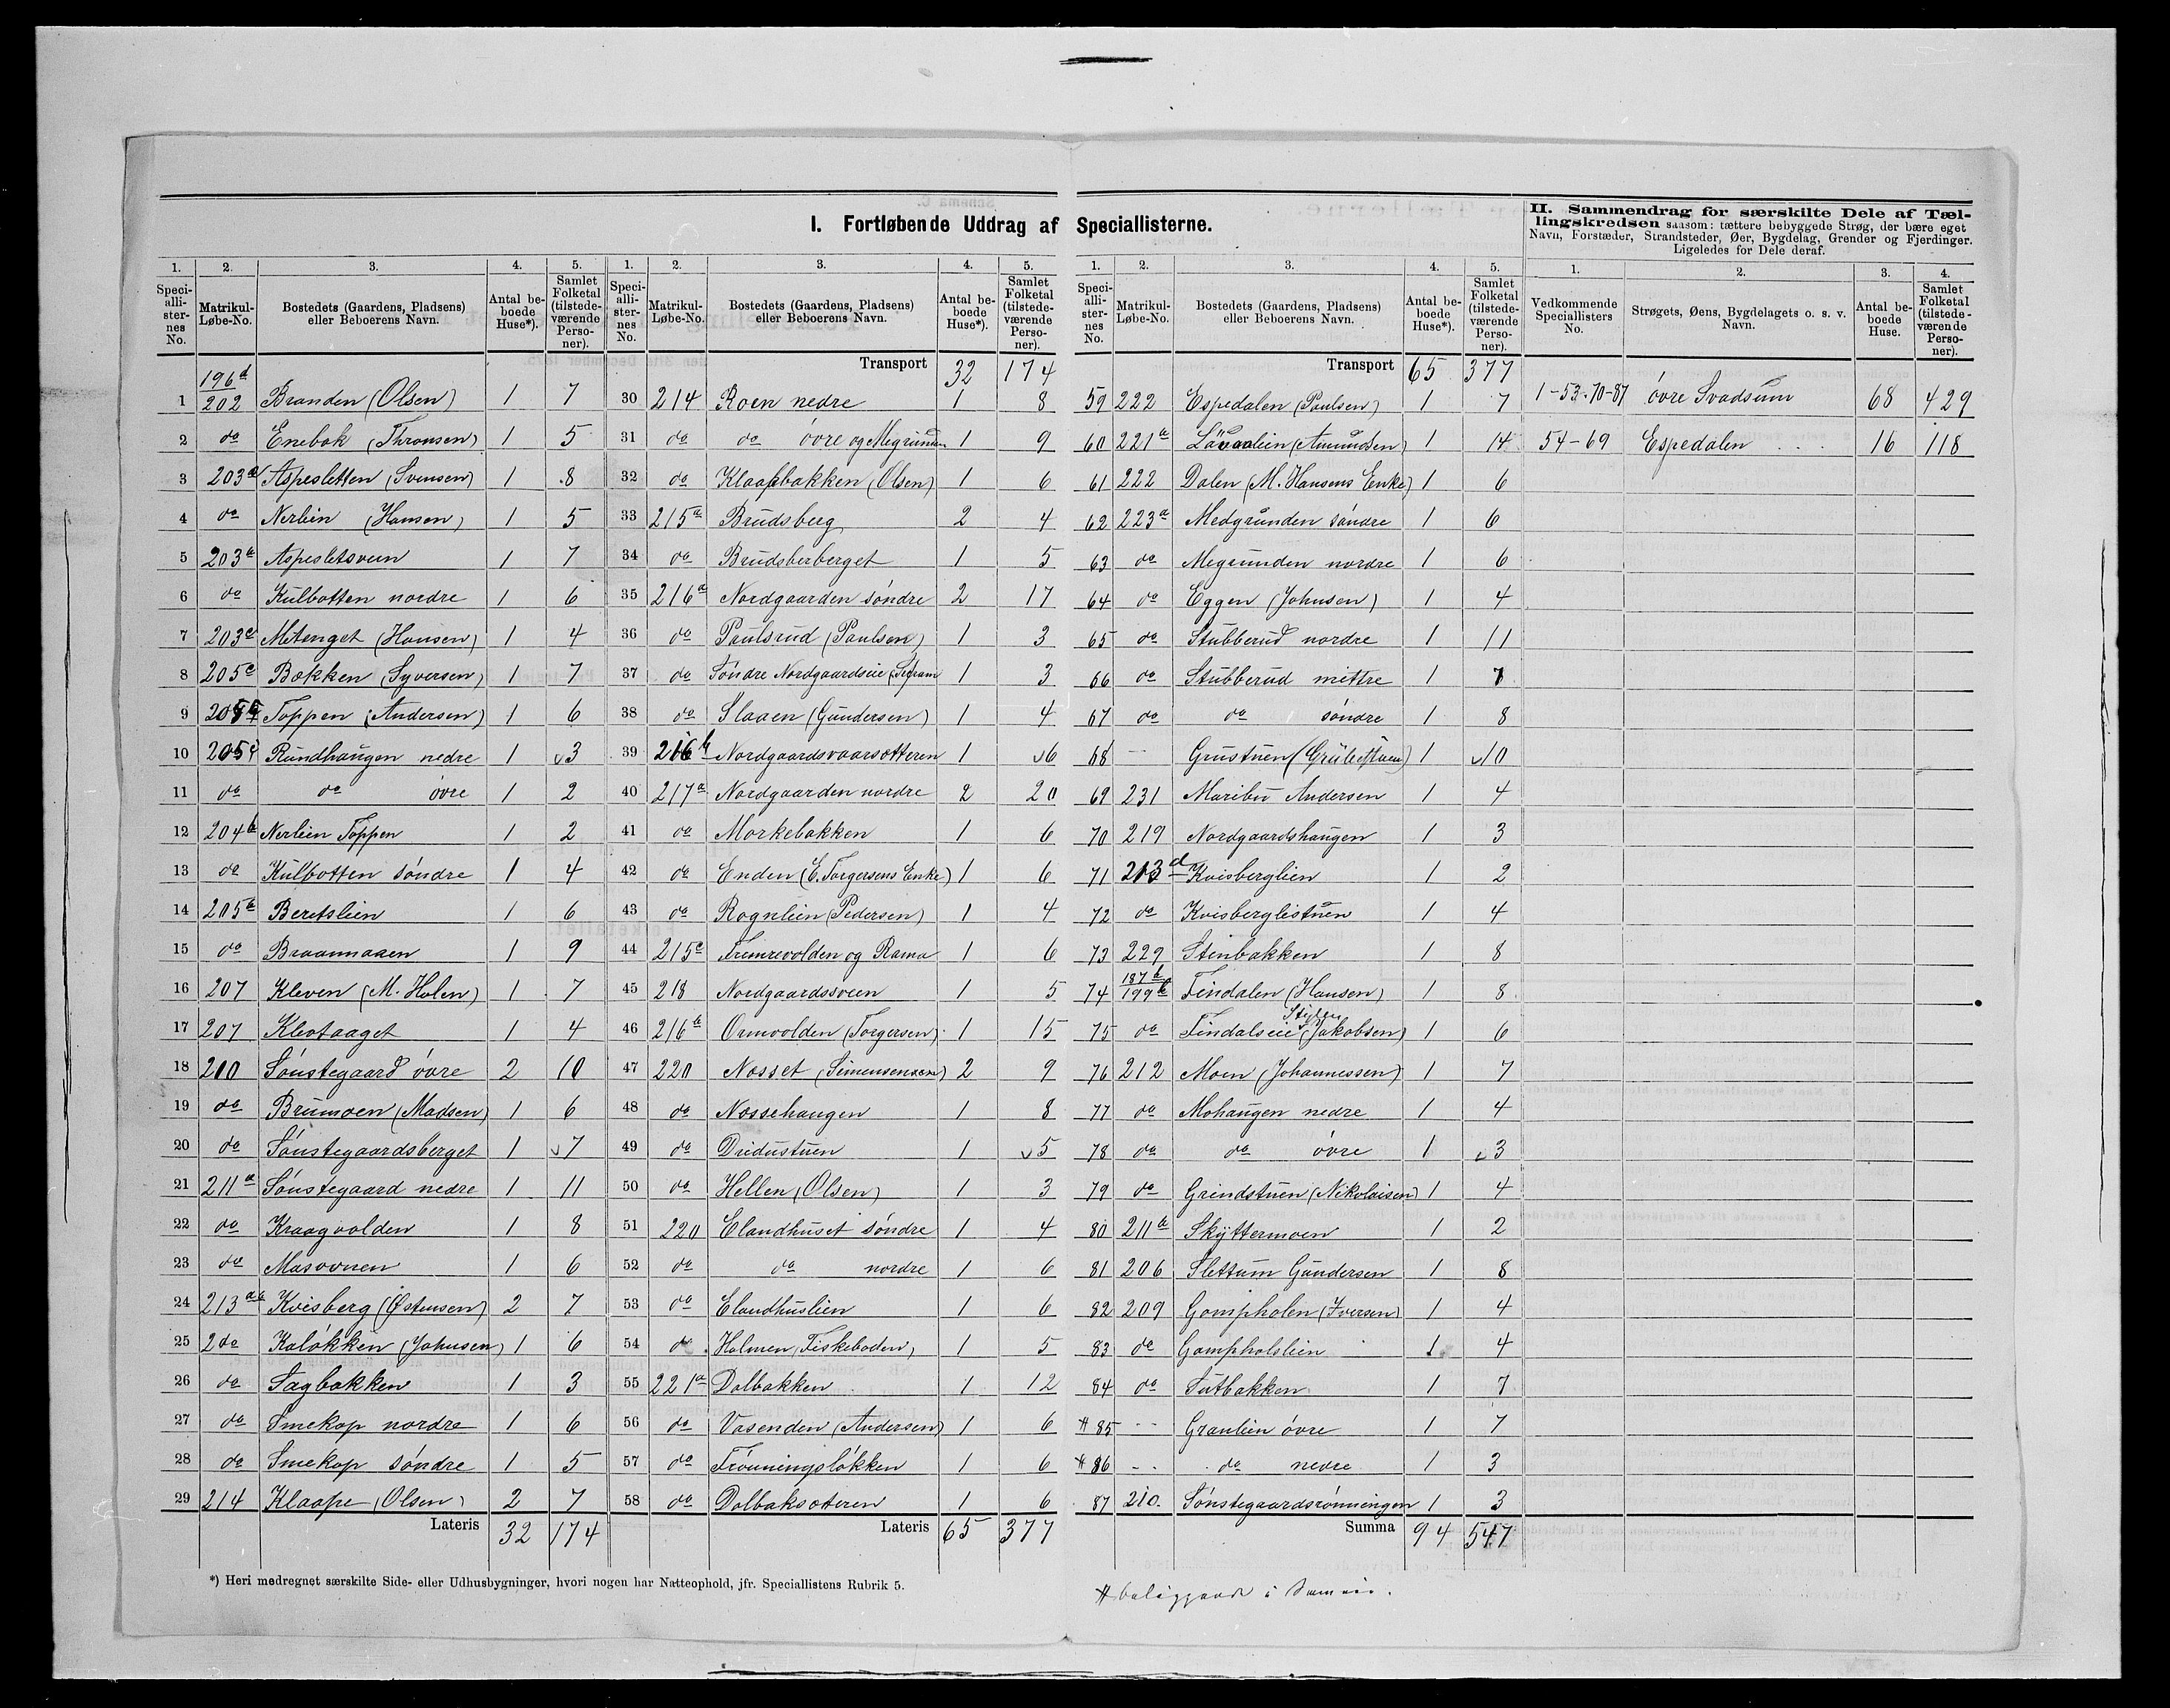 I. Fortløbende Uddrag af Speciallisterne.
II. Sammendrag for særskilte Dele af Tæl-
lingskredsen saasom: tættere bebyggede Strøg, der bære eget
Navn, Forstæder, Strandsteder, Øer, Bygdelag, Grender og Fjerdinger.
Ligeledes for Dele deraf.
1. 2. 3. 4. 5.
Speci-alli-ster-nes No. Matrikul-Løbe-No. Bostedets (Gaardens, Pladsens) eller Beboerens Navn. Antal be-boede Huse*). Samlet Folketal (tilstede-værende Perso-ner).
1 196d/202 Branden (Olsen) 1 7
2 do Enebak (Thronsen) 1 5
3 203a Aspesletten (Svensen) 1 8
4 do Nerlien (Hansen) 1 5
5 203b Aspesletsveen 1 7
6 do Kulbotten nordre 1 6
7 203c Mitenget (Hansen) 1 4
8 205c Bakken (Syversen) 1 7
9 205 Toppen (Andersen) 1 6
10 205 Rundhaugen nedre 1 3
11 do do övre 1 2
12 204b Nerlien Toppen 1 2
13 do Kulbotten söndre 1 4
14 205b Beretslien 1 6
15 do Braanmaaen 1 9
16 207 Kleven (M. Holen) 1 7
17 207 Klevtaaget 1 4
18 210 Sönstegaard övre 2 10
19 do Brumoen (Madsen) 1 6
20 do Sönstegaardsberget 1 7
21 211a Sönstegaard nedre 1 11
22 do Kraagvolden 1 8
23 do Masovnen 1 6
24 213ab Kvisberg (Østensen) 2 7
25 do Kalökken (Johnsen) 1 6
26 do Sagbakken 1 3
27 do Smekop nordre 1 6
28 do Smekop söndre 1 5
29 214 Klaape (Olsen) 2 7
Lateris 32 174
1. 2. 3. 4. 5.
Speci-alli-ster-nes No. Matrikul-Løbe-No. Bostedets (Gaardens, Pladsens) eller Beboerens Navn. Antal be-boede Huse*). Samlet Folketal (tilstede-værende Perso-ner).
Transport 32 174
30 214 Roen nedre 1 8
31 do do övre og Megrunden 1 9
32 do Klaapbakken (Olsen) 1 6
33 215a Brudsberg 2 4
34 do Brudsberberget 1 5
35 216a Nordgaarden söndre 2 17
36 do Paulsrud (Paulsen) 1 3
37 do Söndre Nordgaardseie 1 3
38 do Slaaen (Gundersen) 1 4
39 216b Nordgaardsvaarsætteren 1 6
40 217a Nordgaarden nordre 2 20
41 do Morkebakken 1 6
42 do Enden (E. Torgersens Enke) 1 6
43 do Rognlien (Pedersen) 1 4
44 215c Fremrevolden og Rama 1 6
45 218 Nordgaardssveen 1 5
46 216b Ormvolden (Torgersen) 1 15
47 220 Nosset (Simensensen) 2 9
48 do Nossehaugen 1 8
49 do Dridustuen 1 5
50 do Hellen (Olsen) 1 3
51 220 Elandhuset söndre 1 4
52 do do nordre 1 6
53 do Elandhuslien 1 6
54 do Holmen, Fiskeboden, 1 5
55 221a Dalbakken 1 12
56 do Vasenden (Andersen) 1 6
57 do Frönningslökken 1 6
58 do Dalbaksæteren 1 6
Lateris 65 377
1. 2. 3. 4. 5.
Speci-alli-ster-nes No. Matrikul-Løbe-No. Bostedets (Gaardens, Pladsens) eller Beboerens Navn. Antal be-boede Huse*). Samlet Folketal (tilstede-værende Perso-ner).
Transport 65 377
59 222 Espedalen (Paulsen) 1 7
60 221b (Amundsen) 1 14
61 222 Dalen (M. Hansens Enke) 1 6
62 223a Medgrunden söndre 1 6
63 do Megrunden nordre 1 6
64 do Eggen (Johnsen) 1 4
65 do Stubberud nordre 1 11
66 do Stubberud mittre 1 7
67 do do söndre 1 8
68 Grustuen (Grubestuen) 1 10
69 231 Maribu Andersen 1 4
70 219 Nordgaardshaugen 1 3
71 213d Kvisberglien 1 2
72 do Kvisberglistuen 1 4
73 229 Stenbakken 1 8
74 187b/199b Findalen (Hansen) 1 8
75 do Findalseie Stylen (Jakobsen) 1 6
76 212 Moen (Johannessen) 1 7
77 do Mohaugen nedre 1 4
78 do do övre 1 3
79 do Grindstuen (Nikolaisen) 1 4
80 211b Skyttermoen 1 2
81 206 Slettum Gundersen 1 8
82 209 Gompholen (Iversen) 1 4
83 do Gampholslien 1 4
84 do Sutbakken 1 7
# 85 -- Granlien övre 1 7
# 86 -- do nedre 1 3
87 210. Sönstegaardsrönningen 1 3
Summa 94 547
1. 2. 3. 4.
Vedkommende Speciallisters No. Strøgets, Øens, Bygdelagets o. s. v. Navn. Antal be-boede Huse. Samlet Folketal (tilstede-værende Perso-ner).
1-53-70-87 övre Svadsum 68 429
54-69 Espedalen 16 118
*) Heri medregnet særskilte Side- eller Udhusbygninger, hvori nogen har Natteophold, jfr. Speciallistens Rubrik 5.
# beliggende i